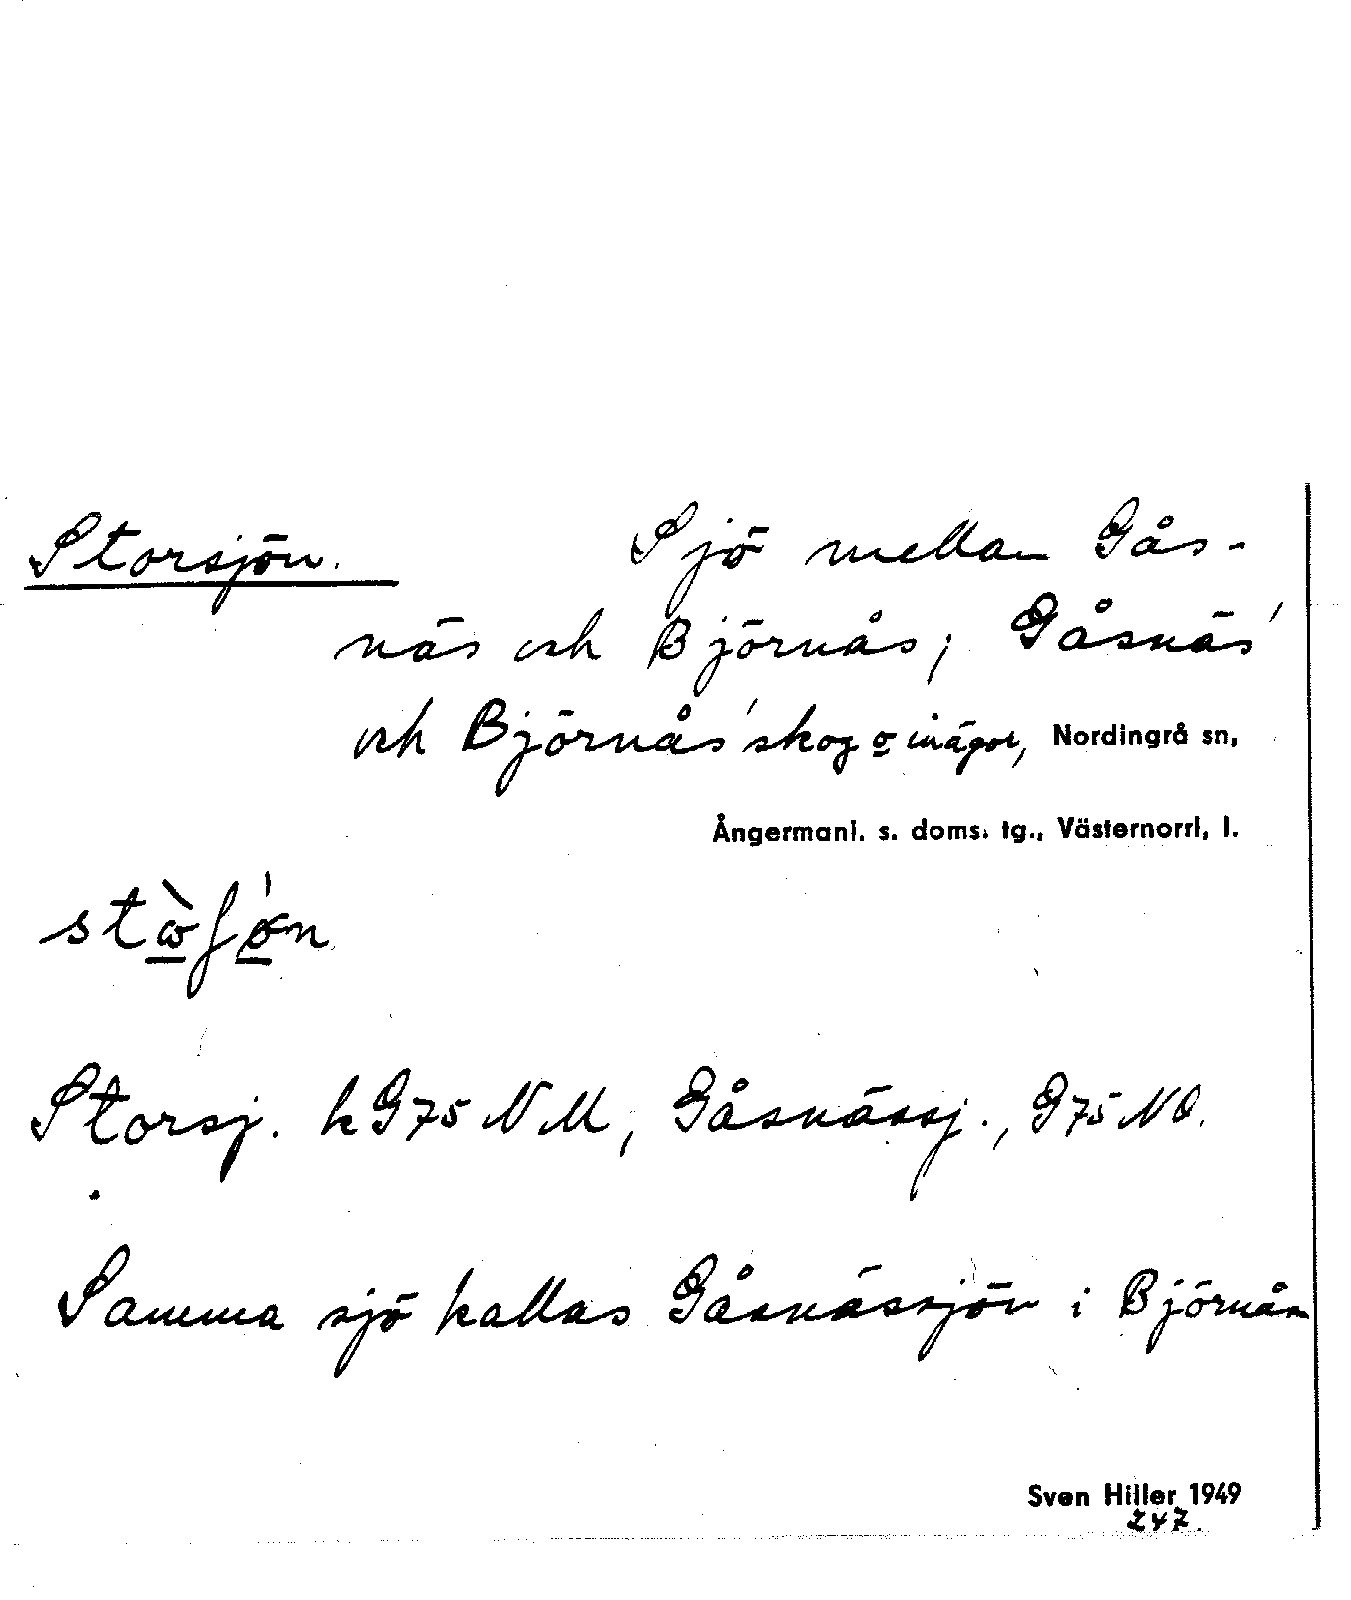 Storsjön. Sjö mellan Gås-
näs och Björnås; Gåsnäs'
och Björnås' skog o inägor, Nordingrå sn,
Ångermanl. s. doms. tg., Västernorrl. l.
Storsj. kG75 NM, Gåsnässj., G75 NO.
Samma sjö kallas Gåsnässjön i Björnås
Sven Hiller 1949
247.